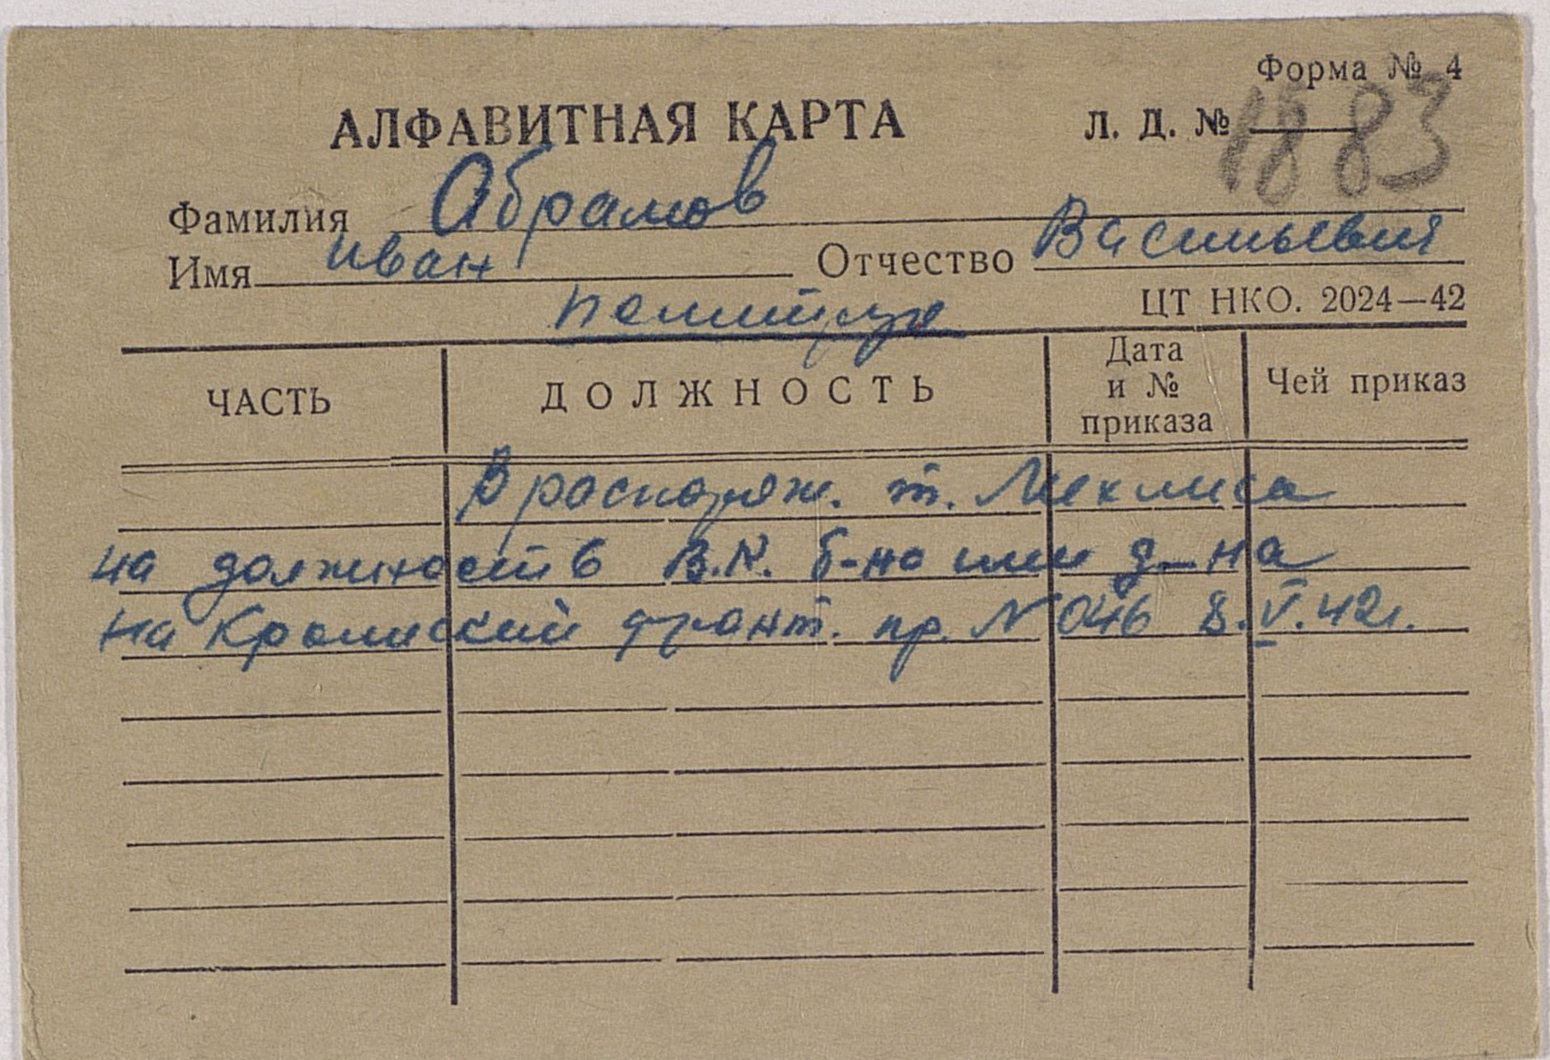 Форма № 4
АЛФАВИТНАЯ КАРТА
Л. Д. № 1883
Фамилия Абрамов
Имя Иван Отчество Васильевич
политрук
ЦТ НКО. 2024—42
ЧАСТЬ ДОЛЖНОСТЬ Дата и № приказа Чей приказ
В распоряж. т. Мехлиса
на должность В.К. б-на или д-на
на Крымский фронт. пр. N 046 8.V.42г.